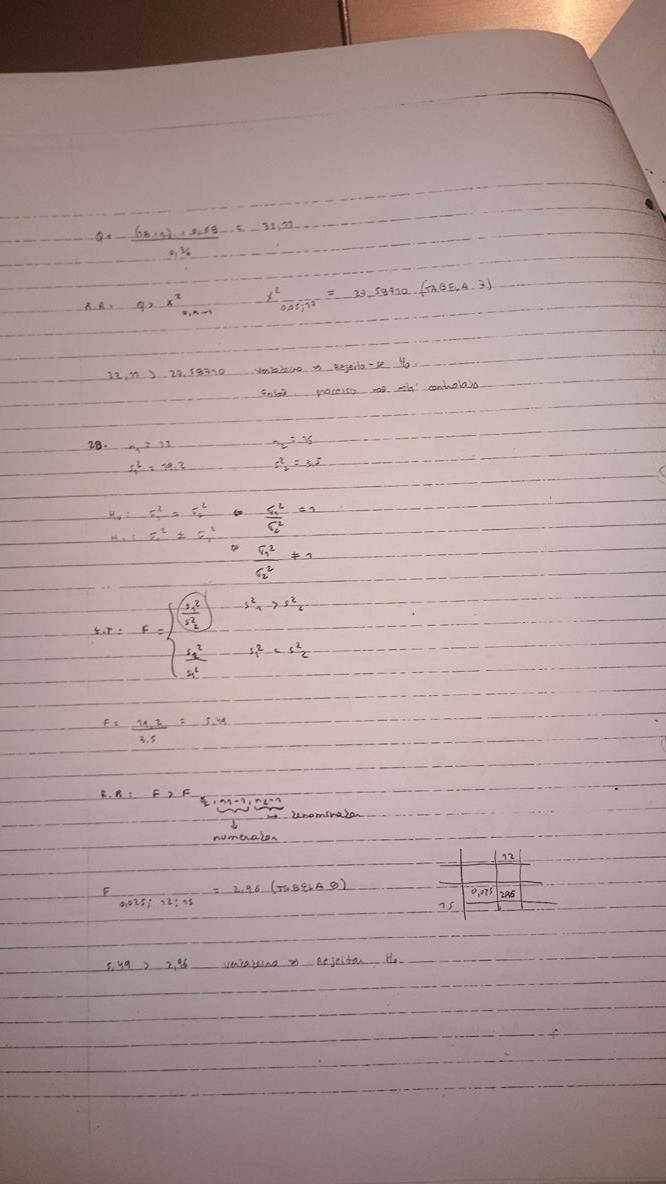 Q = (18-1) · 0,68 / 0,36 = 32,11
R.R: Q > X²α,n-1 X²0,05;17 = 27,58710 (TABELA 7)
32,11 > 27,58710 verdadeiro → Rejeita-se H₀
Então processo não está controlado
28. n₁ = 13 n₂ = 16
s₁² = 19,2 s₂² = 3,5
H₀: σ₁² = σ₂² ⇔ σ₁²/σ₂² = 1
⇔ σ₁²/σ₂² ≠ 1
E.T: F = { s₁²/s₂² s²₁ > s²₂
s₂²/s₁² s₁² < s²₂
F = 19,2 / 3,5 = 5,49
R.R: F > F n1-1, n2-1
→ denominador
numerador
F 0,025; 12; 15 = 2,96 (TABELA 9)
12
0,025 2,96
15
5,49 > 2,96 verdadeiro → Rejeitar H₀